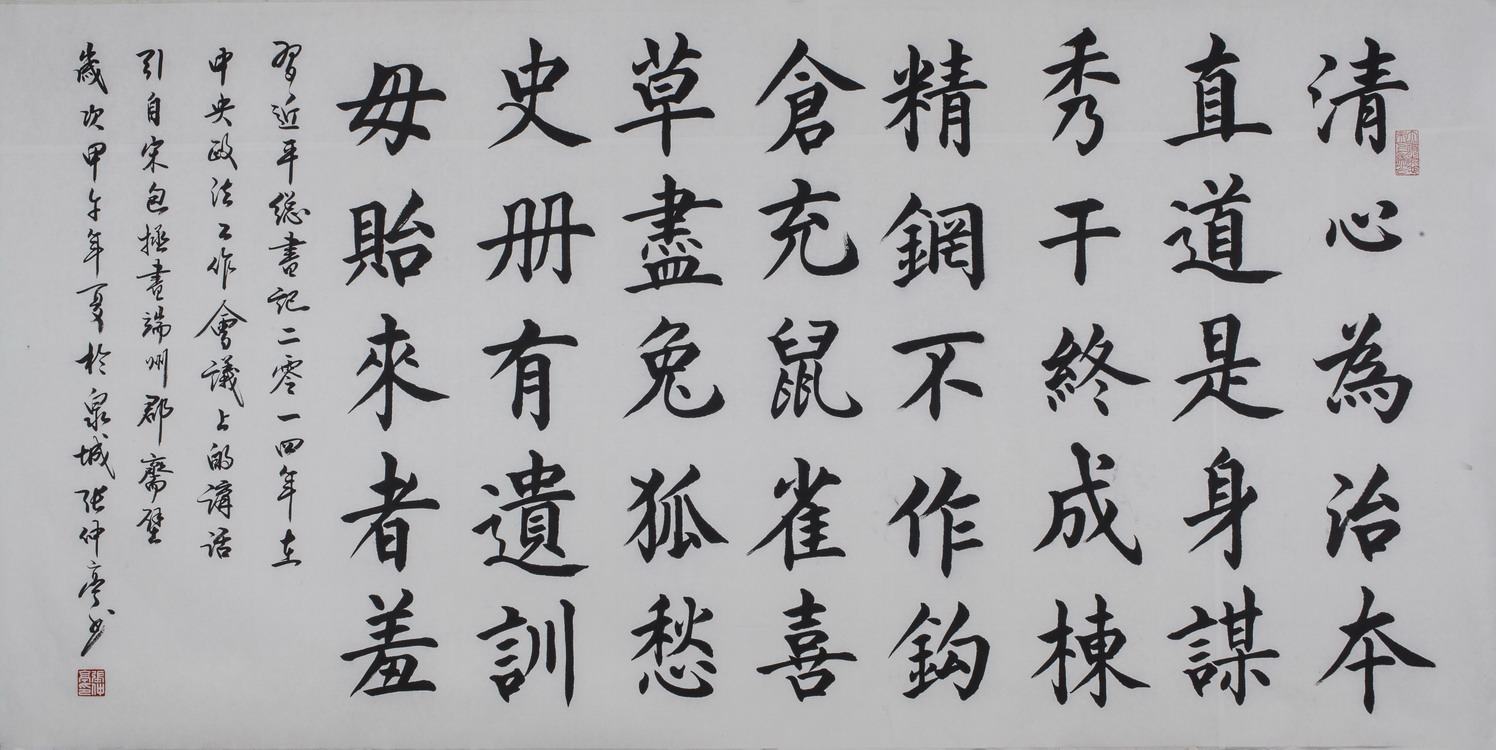 清心為治本
直道是身謀
秀干終成棟
精鋼不作鈎
倉充鼠雀喜
草盡兔狐愁
史册有遺訓
毋貽來者羞
習近平總書記二零一四年在
中央政法工作會議上的講话
引自宋包拯書端州郡齋壁
歲次甲午年夏於泉城張仲亭书
張仲亭